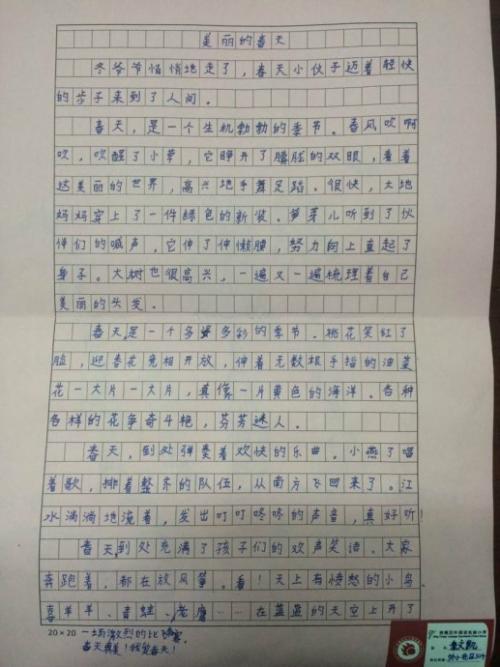 美丽的春天
冬爷爷悄悄地走了，春天小伙子迈着轻快
的步子来到了人间。
春天，是一个生机勃勃的季节。春风吹啊
吹，吹醒了小草，它睁开了朦胧的双眼，看着
这美丽的世界，高兴地手舞足蹈。很快，大地
妈妈穿上了一件绿色的新装。笋芽儿听到了伙
伴们的喊声，它伸了伸懒腰，努力向上直起了
身子。大树也很高兴，一遍又一遍梳理着自己
美丽的头发。
春天，是一个多姿多彩的季节。桃花笑红了
脸，迎春花竞相开放，伸着无数根手指的油菜
花一大片一大片，真像一片黄色的海洋。各种
各样的花争奇斗艳，芬芳迷人。
春天，到处弹奏着欢快的乐曲。小燕子唱
着歌，排着整齐的队伍，从南方飞回来了。江
水滴滴地流着，发出叮叮咚咚的声音，真好听！
春天，到处充满了孩子们的欢声笑语。大家
奔跑着，都在放风筝。看！天上有愤怒的小鸟
喜羊羊、青蛙、老鹰……在蓝蓝的天空上开了
20×20 一场激烈的比赛。
春天真美！我爱春天！